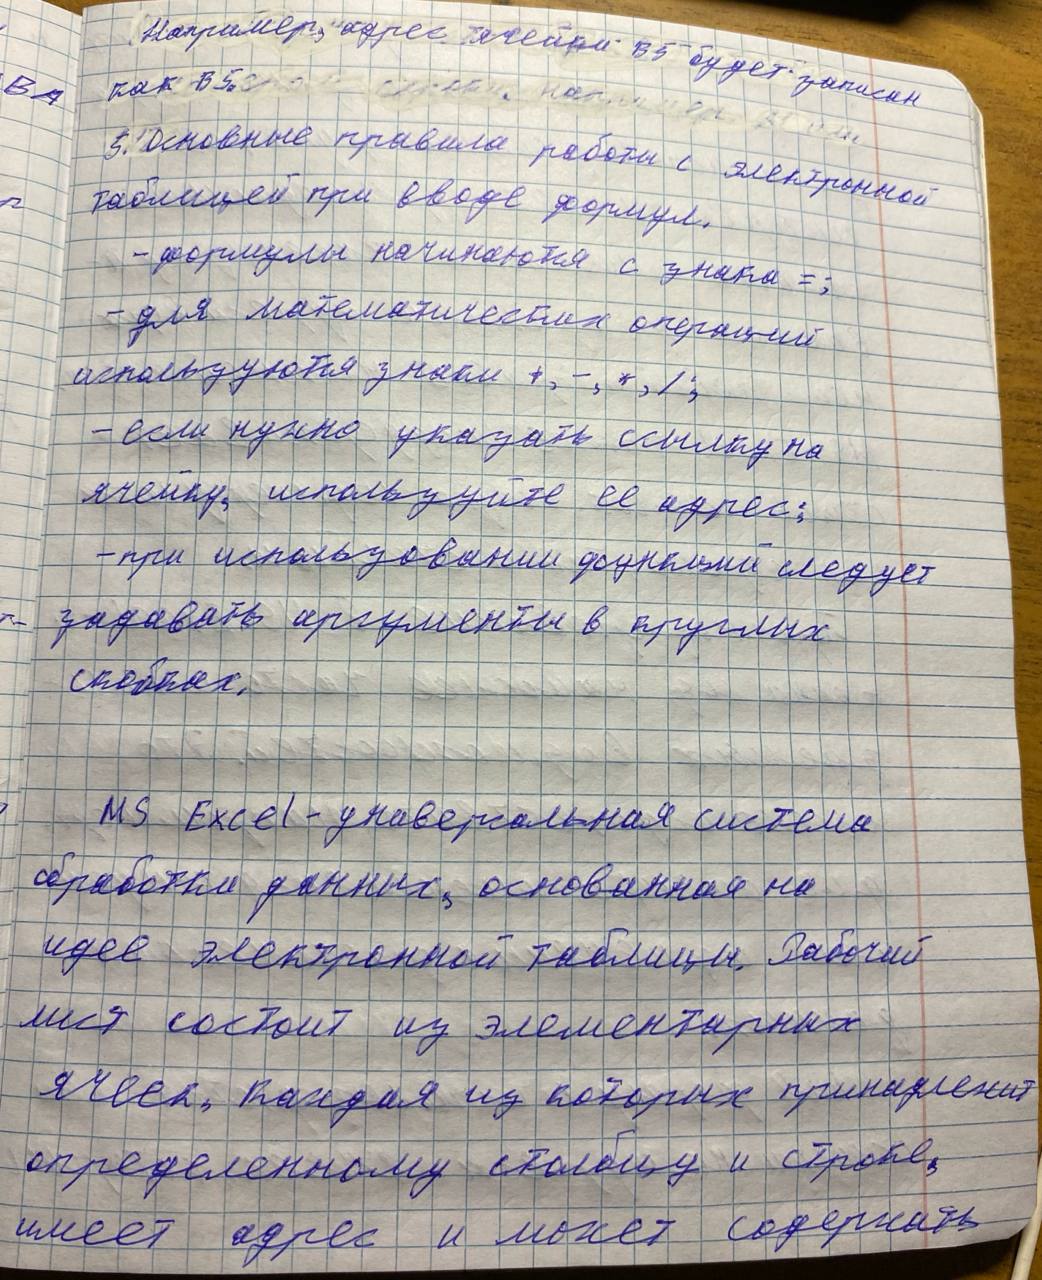 Например, адрес ячейки B5 будет записан
как B5.
5. Основные правила работы с электронной
таблицей при вводе формул.
- формулы начинаются с знака =;
- для математических операций
используются знаки +, -, *, /;
- если нужно указать ссылку на
ячейку, используйте ее адрес;
- при использовании функций следует
задавать аргументы в круглых
скобках.
MS Excel - универсальная система
обработки данных, основанная на
идее электронной таблицы. Рабочий
лист состоит из элементарных
ячеек, каждая из которых принадлежит
определенному столбцу и строке,
имеет адрес и может содержать